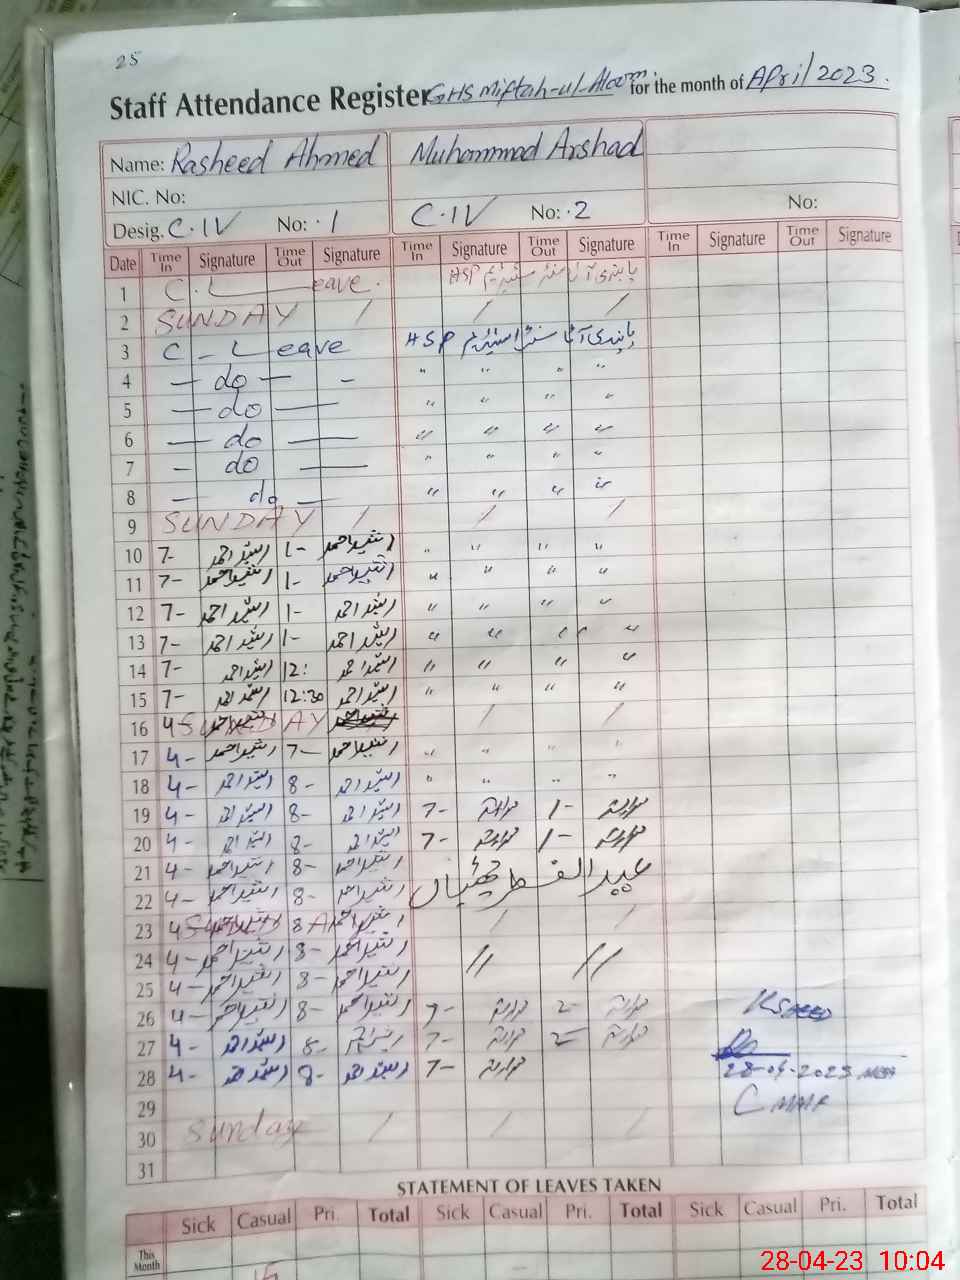 25
Staff Attendance Register GHS Miftah-ul-Aloom for the month of April/2023.
Name: Rasheed Ahmed Muhammad Arshad
NIC. No:
Desig. C.IV No: .1 C.IV No: .2 No:
Date Time In Signature Time Out Signature Time In Signature Time Out Signature Time In Signature Time Out Signature
1 C. Leave. HSP
2 SUNDAY / / /
3 C - Leave HSP
4 — do — - " " " "
5 — do — " " " "
6 — do — " " " "
7 — do — " " " "
8 — do — " " " "
9 SUNDAY / / /
10 7- رشید احمد 1- رشید احمد " " " "
11 7- رشید احمد 1- رشید احمد " " " "
12 7- رشید احمد 1- رشید احمد " " " "
13 7- رشید احمد 1- رشید احمد " " " "
14 7- رشید احمد 12: رشید احمد " " " "
15 7- رشید احمد 12:30 رشید احمد " " " "
16 4- SUNDAY / /
17 4- رشید احمد 7- رشید احمد " " " "
18 4- رشید احمد 8- رشید احمد " " " "
19 4- رشید احمد 8- رشید احمد 7- 1-
20 4- رشید احمد 8- رشید احمد 7- 1-
21 4- رشید احمد 8- رشید احمد عید الفطر چھٹیاں
22 4- رشید احمد 8- رشید احمد
23 4 SUNDAY 8 رشید احمد / /
24 4- رشید احمد 8- رشید احمد // //
25 4- رشید احمد 8- رشید احمد
26 4- رشید احمد 8- رشید احمد 7- 2-
27 4- رشید احمد 8- رشید احمد 7- 2-
28 4- رشید احمد 8- رشید احمد 7- 28-04-2023
29
30 Sunday / / /
31
STATEMENT OF LEAVES TAKEN
Sick Casual Pri. Total Sick Casual Pri. Total Sick Casual Pri. Total
This Month
28-04-23 10:04